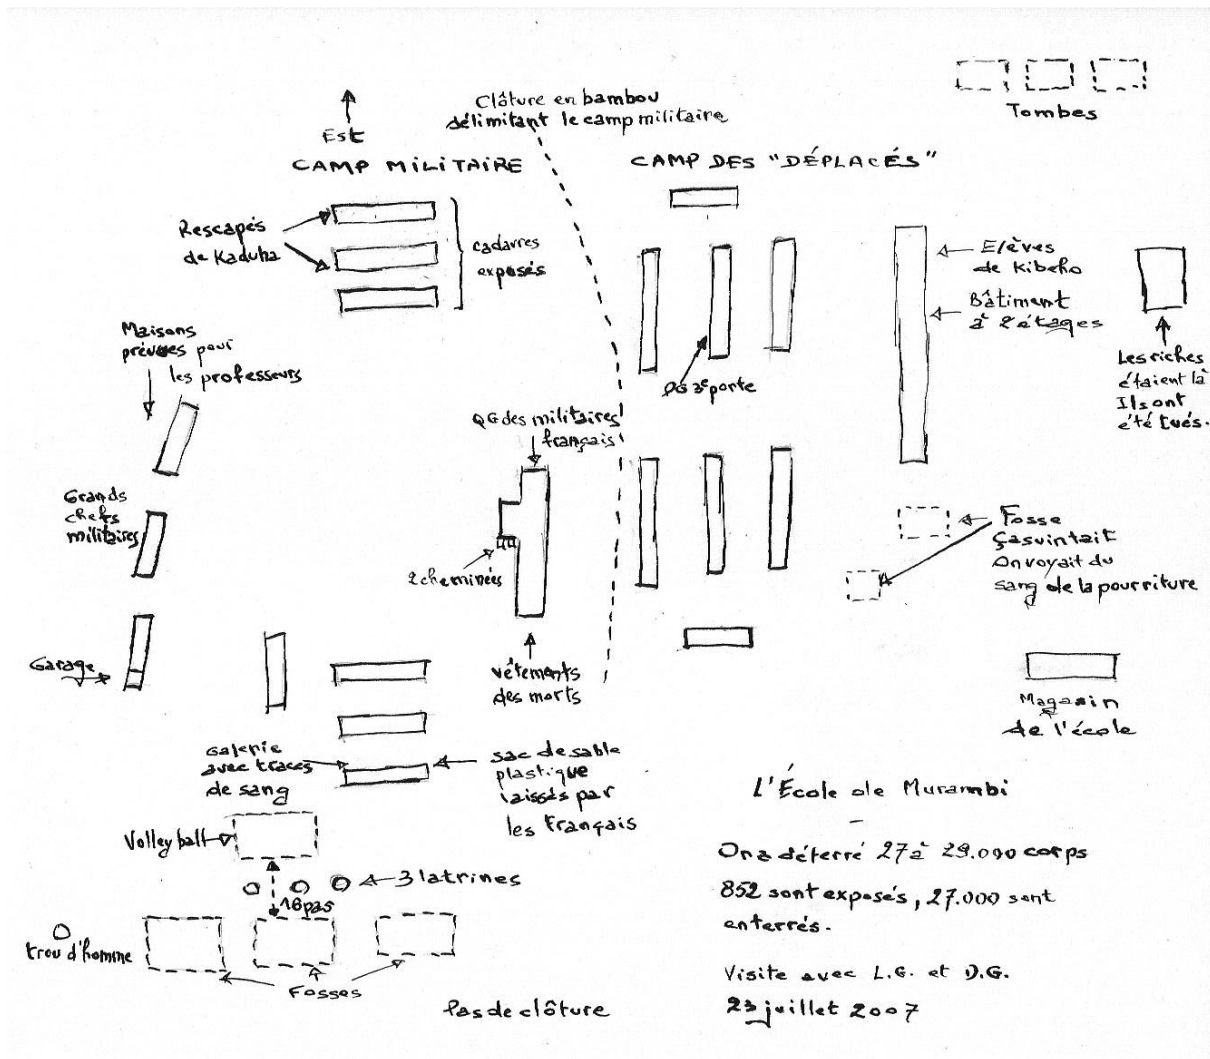 Tombes
Clôture en bambou
délimitant le camp militaire
Est
CAMP MILITAIRE
CAMP DES "DÉPLACÉS"
Rescapés
de Kaduha
cadavres
exposés
Elèves
de Kibeho
Bâtiment
à 2 étages
Les riches
étaient là
Ils ont
été tués.
Maisons
prévues pour
les professeurs
DG 3e porte
QG des militaires
français
Grands
chefs
militaires
2 cheminées
Fosse
ça suintait
On voyait du
sang de la pourriture
Garage
vêtements
des morts
Magasin
de l'école
Galerie
avec traces
de sang
sac de sable
plastique
laissés par
les Français
Volley ball
3 latrines
16 pas
trou d'homme
Fosses
Pas de clôture
L'École de Murambi
On a déterré 27 à 29.000 corps
852 sont exposés, 27.000 sont
enterrés.
Visite avec L.G. et D.G.
23 juillet 2007